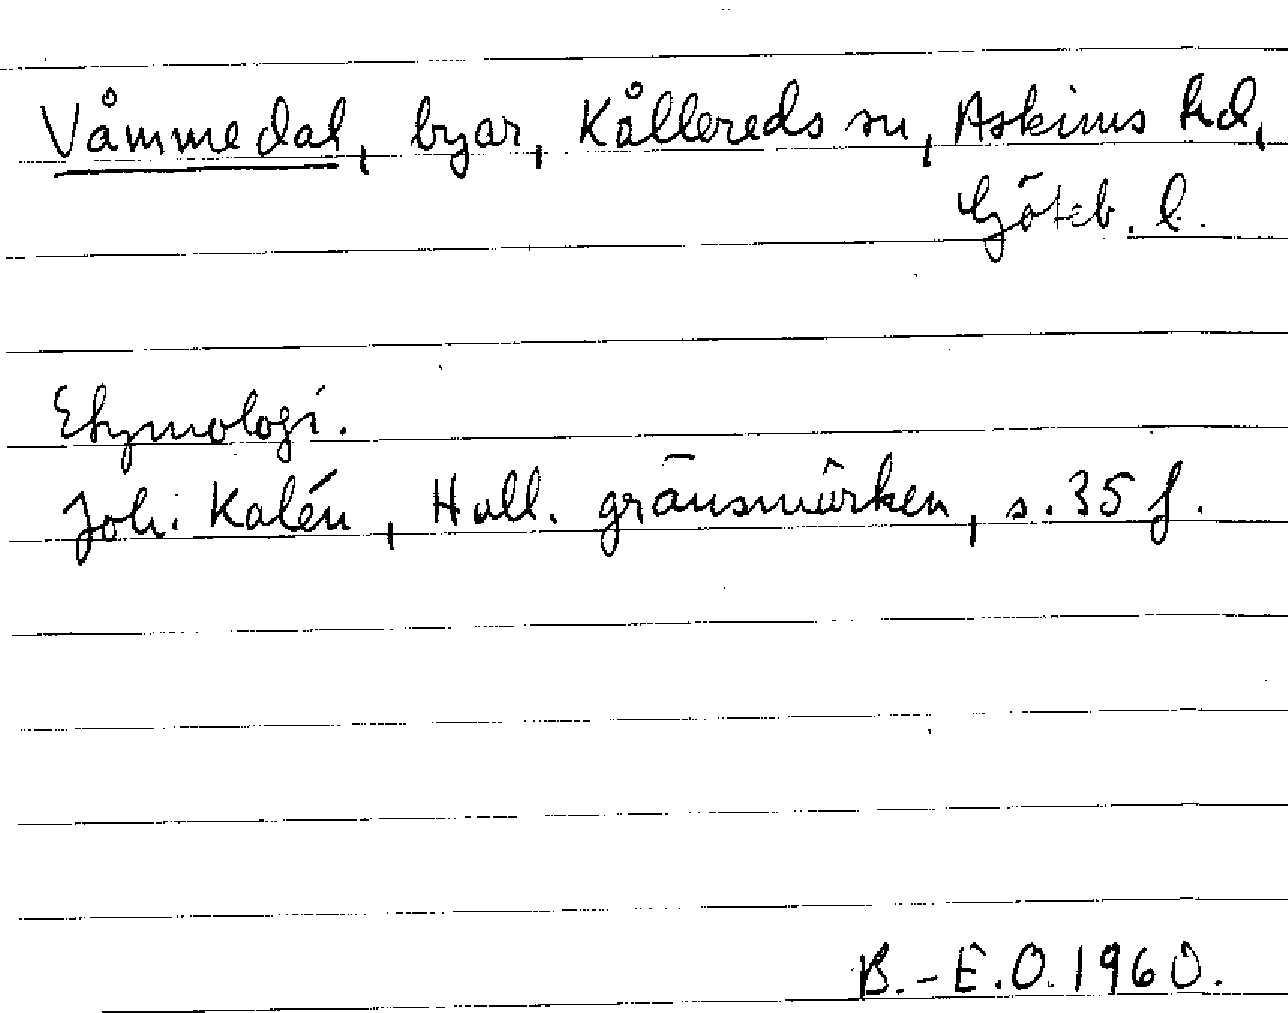 Våmmedal, byar, Kållereds sn, Askims hd,
Göteb. l.
Etymologi.
Joh. Kalén, Hall. gränsmärken, s. 35 f.
B.-E.O. 1960.